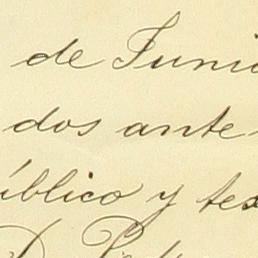 de Juni
dos ante
úblico y tes
D.